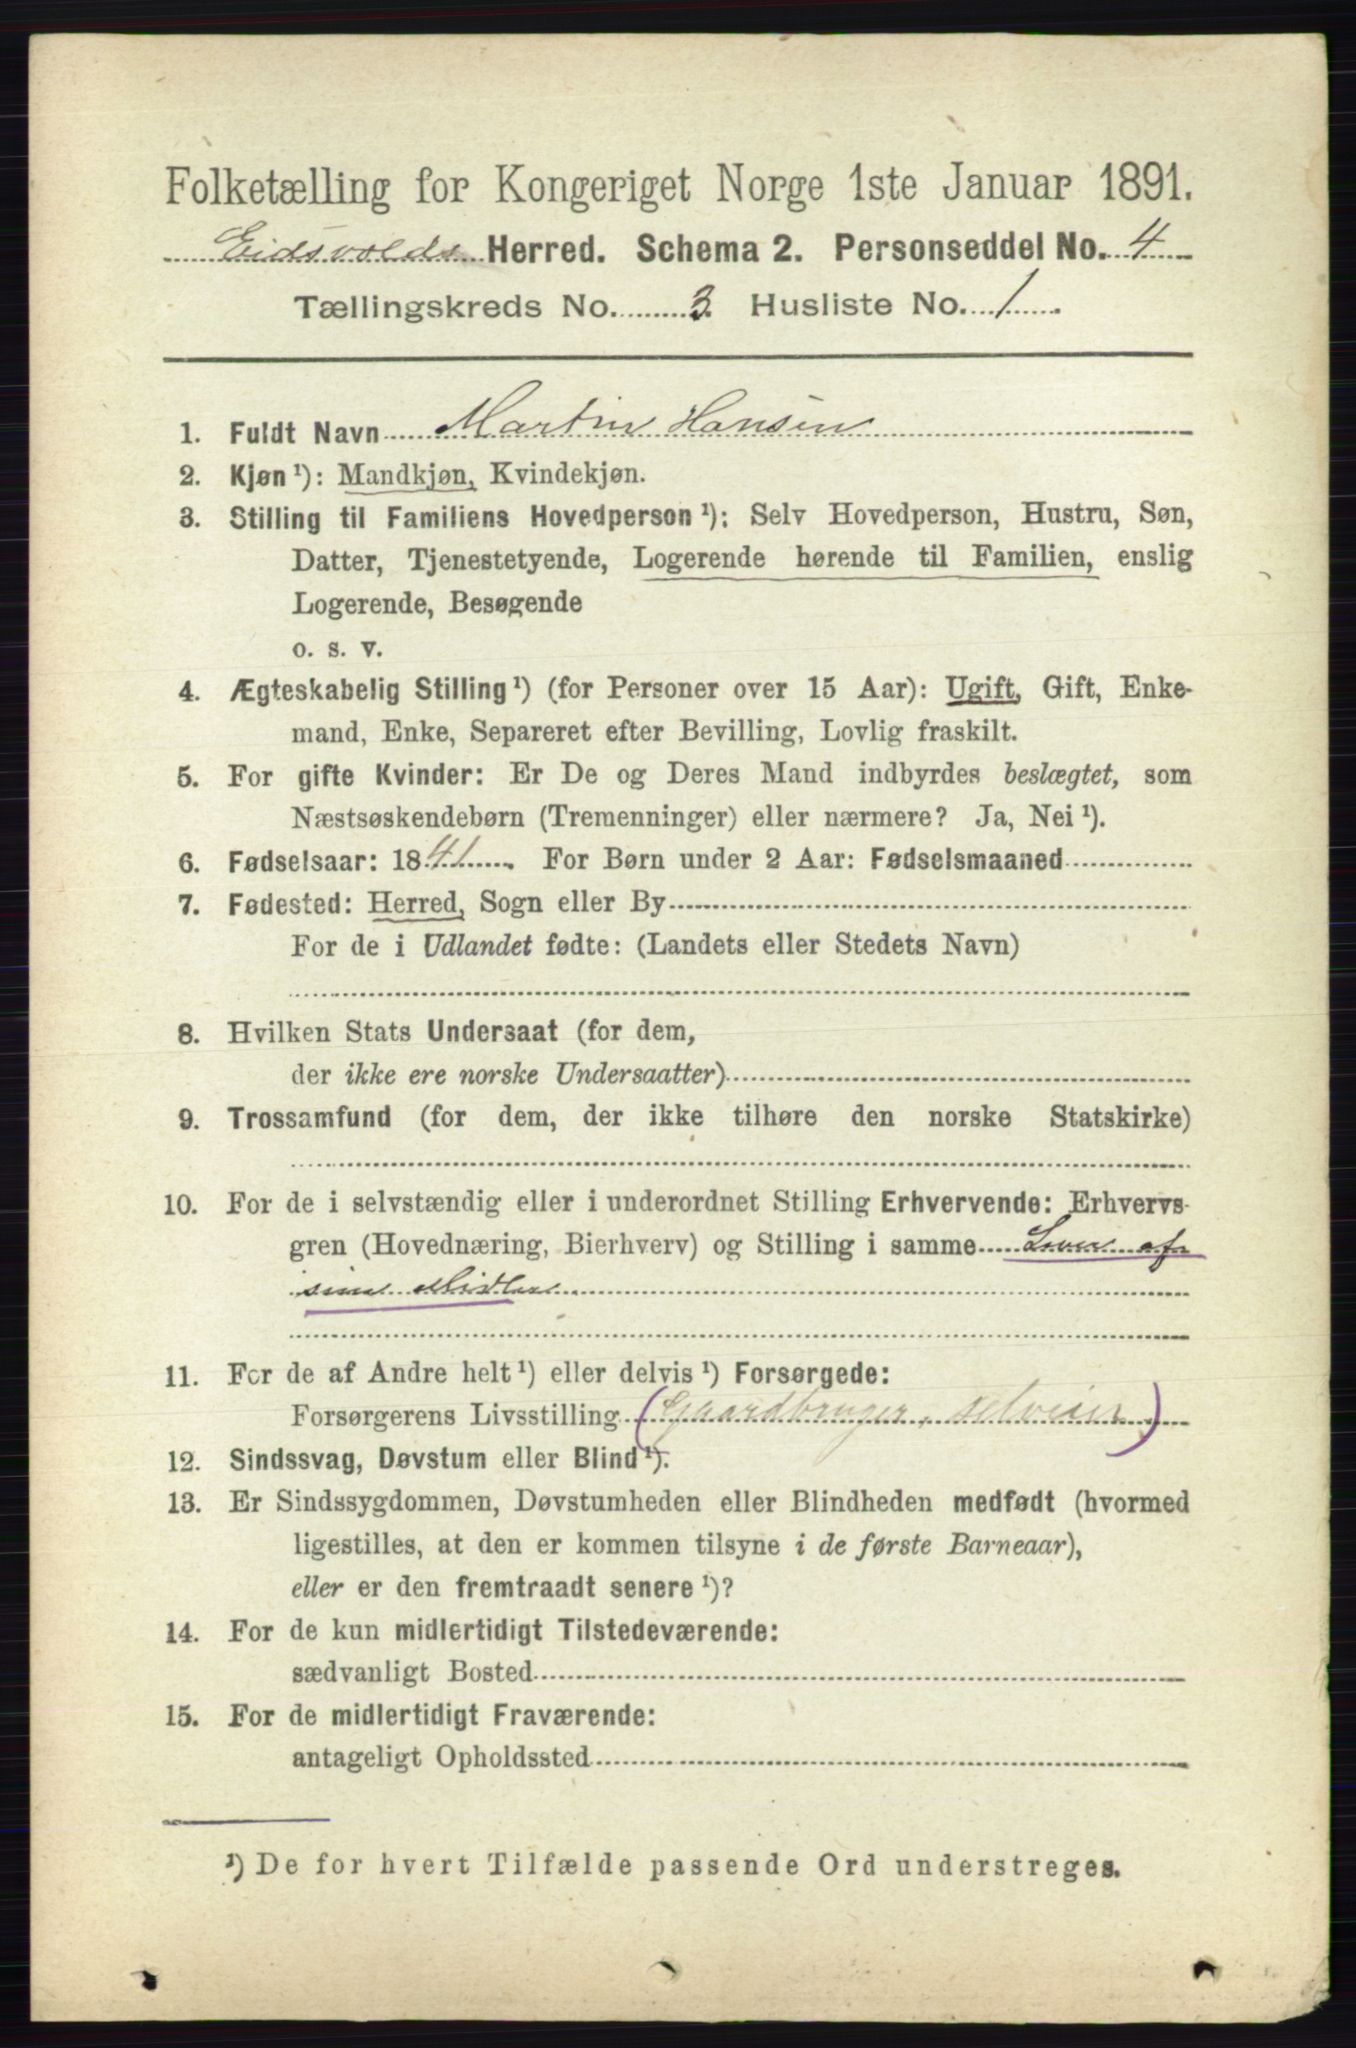 Folketælling for Kongeriget Norge 1ste Januar 1891.
Eidsvolds Herred. Schema 2. Personseddel No. 4
Tællingskreds No. 3. Husliste No. 1
1. Fuldt Navn Martin Hansen
2. Kjøn ¹): Mandkjøn, Kvindekjøn.
3. Stilling til Familiens Hovedperson ¹): Selv Hovedperson, Hustru, Søn,
Datter, Tjenestetyende, Logerende hørende til Familien, enslig
Logerende, Besøgende
o. s. v.
4. Ægteskabelig Stilling ¹) (for Personer over 15 Aar): Ugift, Gift, Enke-
mand, Enke, Separeret efter Bevilling, Lovlig fraskilt.
5. For gifte Kvinder: Er De og Deres Mand indbyrdes beslægtet, som
Næstsøskendebørn (Tremenninger) eller nærmere? Ja, Nei ¹).
6. Fødselsaar: 1841. For Børn under 2 Aar: Fødselsmaaned
7. Fødested: Herred, Sogn eller By
For de i Udlandet fødte: (Landets eller Stedets Navn)
8. Hvilken Stats Undersaat (for dem,
der ikke ere norske Undersaatter)
9. Trossamfund (for dem, der ikke tilhøre den norske Statskirke)
10. For de i selvstændig eller i underordnet Stilling Erhvervende: Erhvervs-
gren (Hovednæring, Bierhverv) og Stilling i samme Lever af
sine Midler
11. For de af Andre helt ¹) eller delvis ¹) Forsørgede:
Forsørgerens Livsstilling (Gaardbruger, selveier)
12. Sindssvag, Døvstum eller Blind ¹).
13. Er Sindssygdommen, Døvstumheden eller Blindheden medfødt (hvormed
ligestilles, at den er kommen tilsyne i de første Barneaar),
eller er den fremtraadt senere ¹)?
14. For de kun midlertidigt Tilstedeværende:
sædvanligt Bosted
15. For de midlertidigt Fraværende:
antageligt Opholdssted
¹) De for hvert Tilfælde passende Ord understreges.